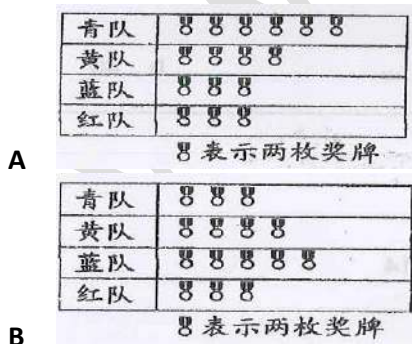 青队
黄队
蓝队
红队
表示两枚奖牌
A
青队
黄队
蓝队
红队
表示两枚奖牌
B